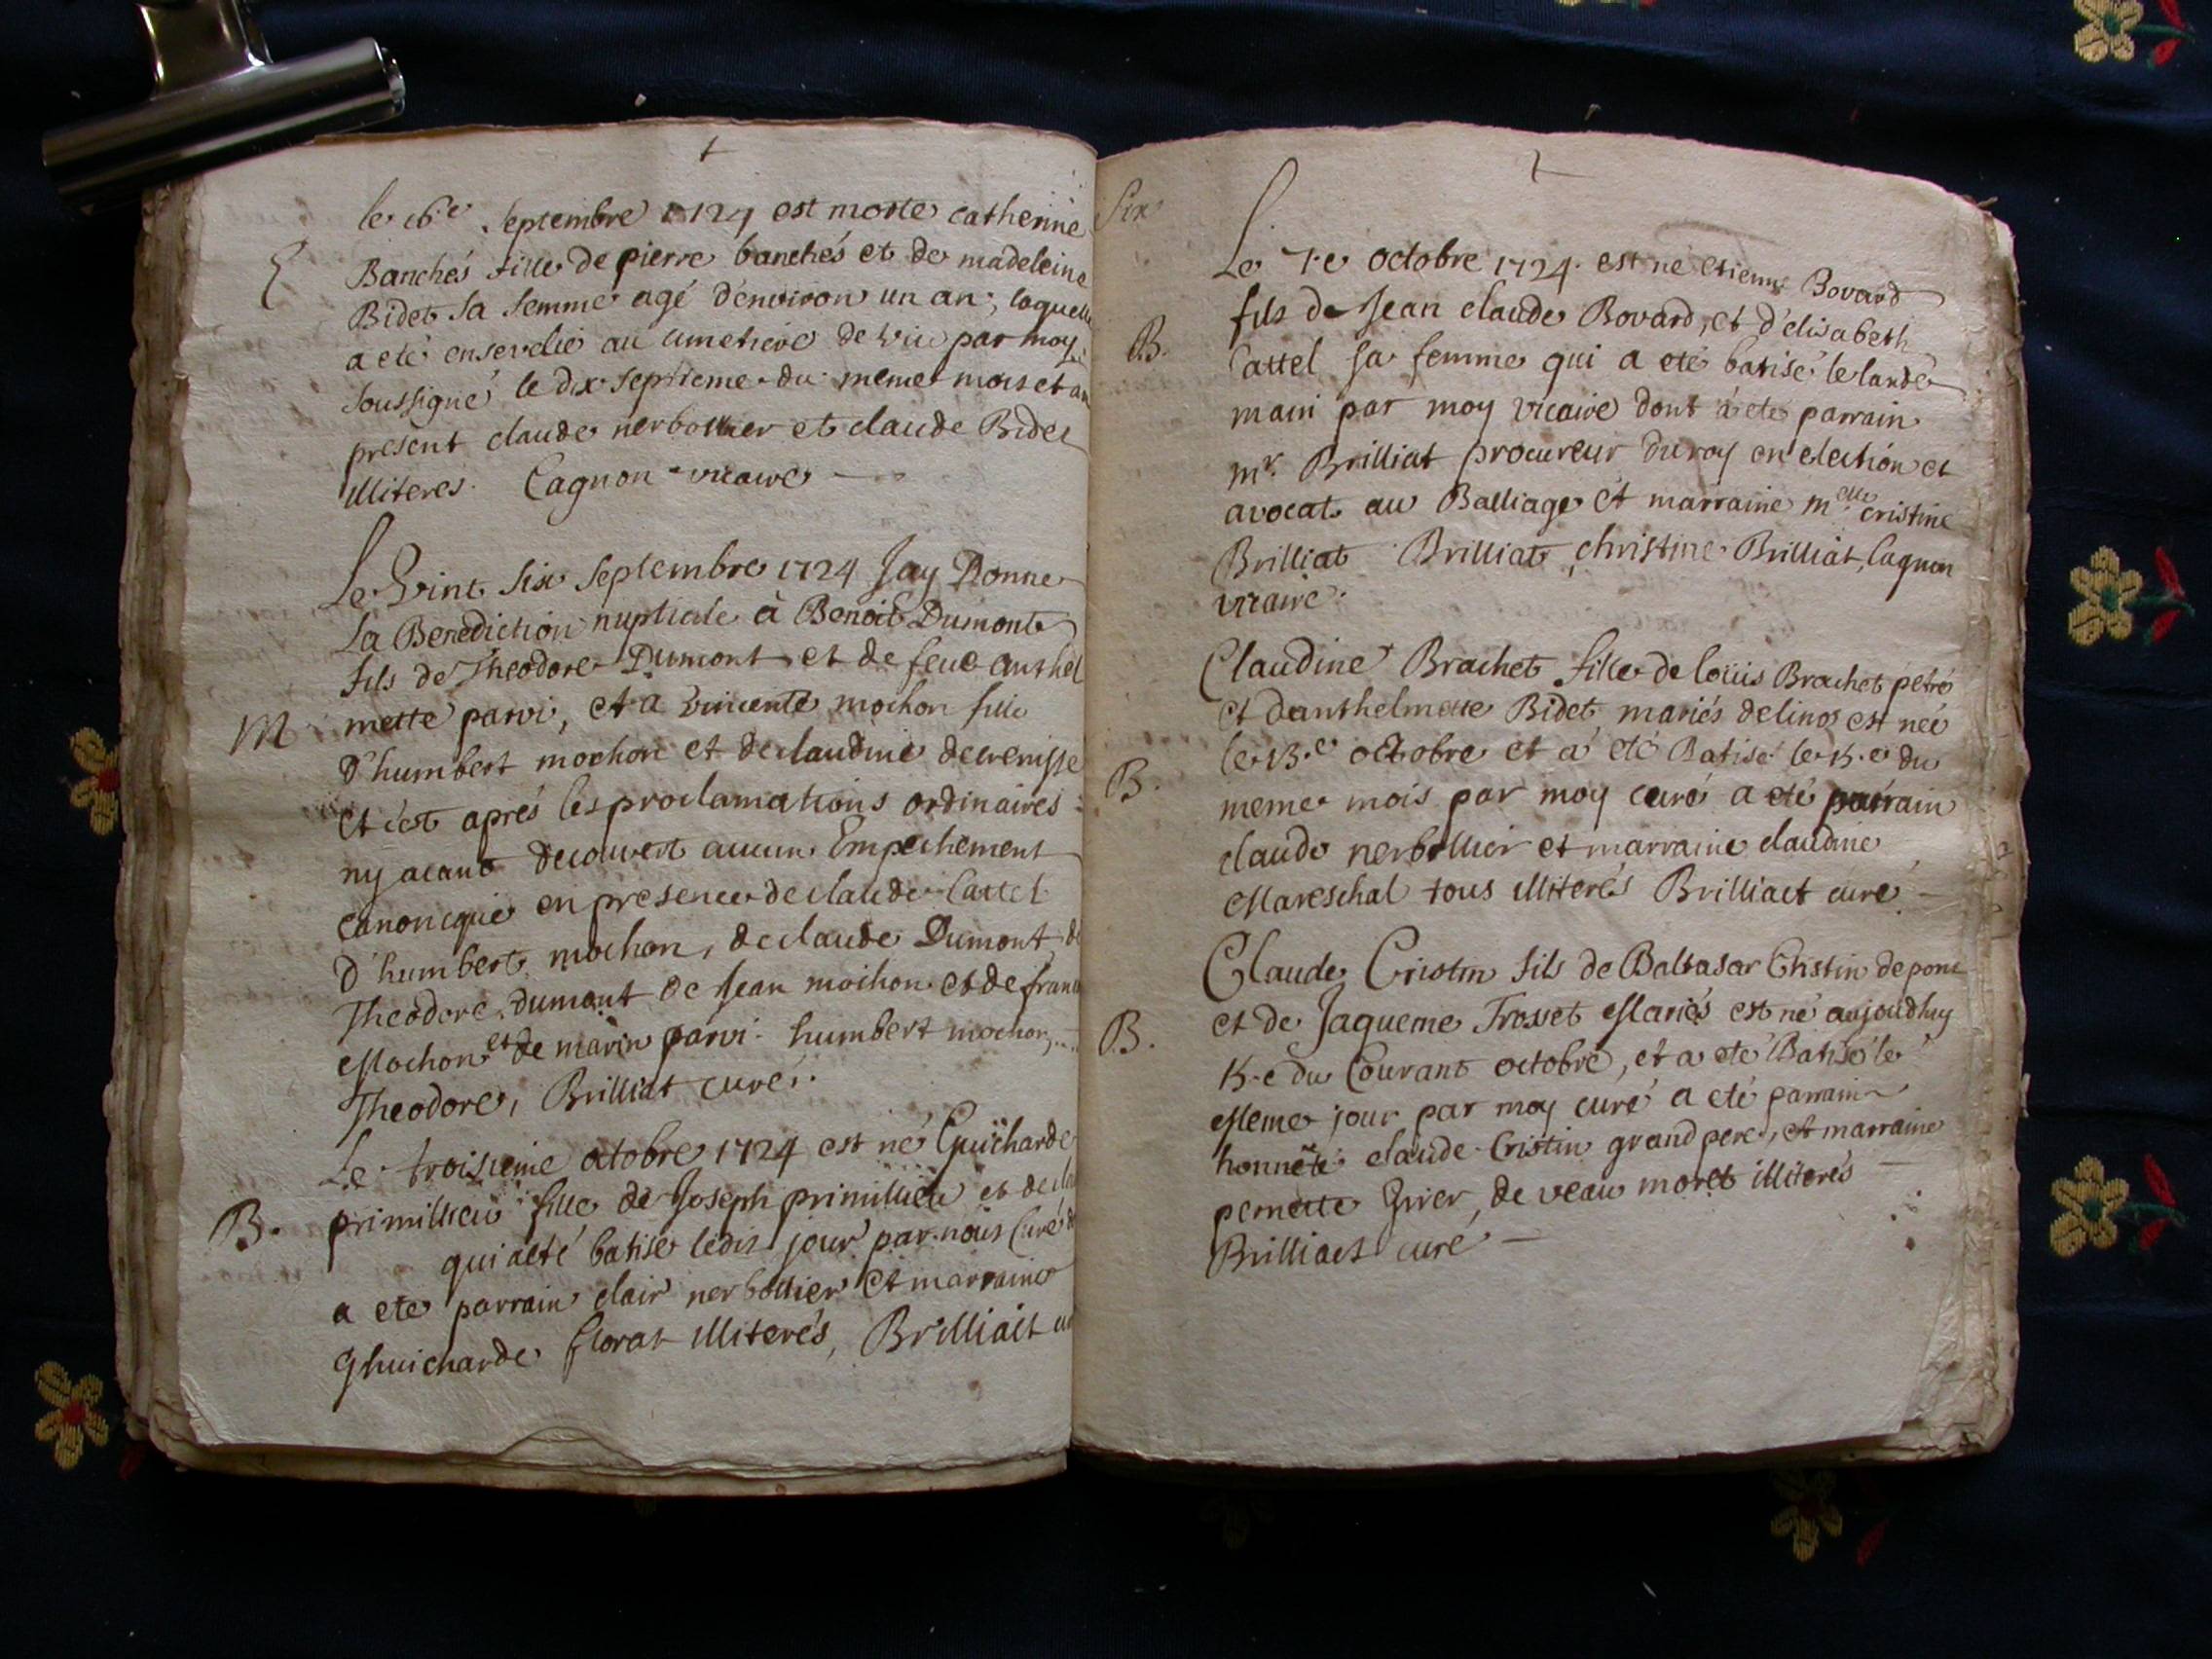 le 16.e Septembre 1724 est morte catherine
E Banchés fille de pierre banchés et de madeleine
Bidet sa femme agé d'environ un an, laquelle
a eté ensevelie au cimetiere de par moy
soussigné le dix septieme du meme mois et an
present claude nerbollier et claude Bidet
illiteres. Cagnon vicaire
Le Vint six Septembre 1724 Jay Donne
La Benediction nuptiale à Benoit Dumont
fils de Theodore Dumont et de feue anthel
M mette parvi, et a vincente mochon fille
d'humbert mochon et de claudine decrenisse
et c'est aprés les proclamations ordinaires
ny aiant decouvert aucun Empechement
canonique en presence de claude Cattel
d'humbert mochon, de claude Dumont, de
Theodore dumont de Jean mochon et de franc
Mochon et de marin parvi. humbert mochon,
Theodore, Brilliat curé.
Le troisieme octobre 1724 est né Guicharde
B. primillieu fille de Joseph primillieu et de cla
qui a eté batisé ledit jour par nous Curé
a ete parrain clair nerbollier et marraine
Ghuicharde florat illiterés, Brilliait cu
Six
Le 7.e octobre 1724. est ne etienne Bovard
fils de Jean claude Bovard, et d'elisabeth
B. Cattel sa femme qui a eté batisé le lande
main par moy vicaire dont a eté parrain
mr. Brilliat procureur du roy en election et
avocat au Balliage et marraine melle cristine
Brilliat Brilliat, christine Brilliat, Cagnon
vicaire.
Claudine Brachet fille de loüis Brachet petré
et danthelmette Bidet mariés de est née
le 13.e octobre et a eté Batisé le 15.e du
B. meme mois par moy curé a eté parrain
claude nerbollier et marraine claudine
Mareschal tous illiterés Brilliact curé
Claude Cristin fils de Baltasar Christin de pont
et de Jaqueme Trosset Mariés est né aujoudhuy
B. 15.e du Courant octobre, et a eté Batisé le
Meme jour par moy curé a eté parrain
honnete claude Cristin grand pere, et marraine
pernette Giver, de veau moret illiterés
Brilliact curé